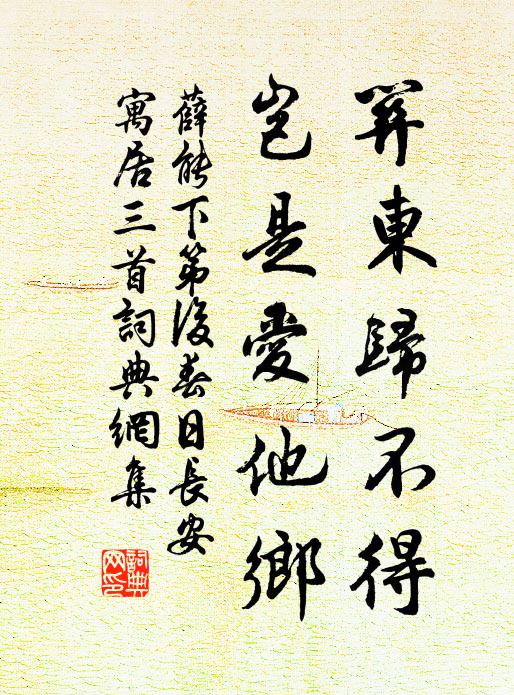 關東歸不得
豈是愛他鄉
薛能下第後春日長安
寓居三首詞典網集
詞典
网印